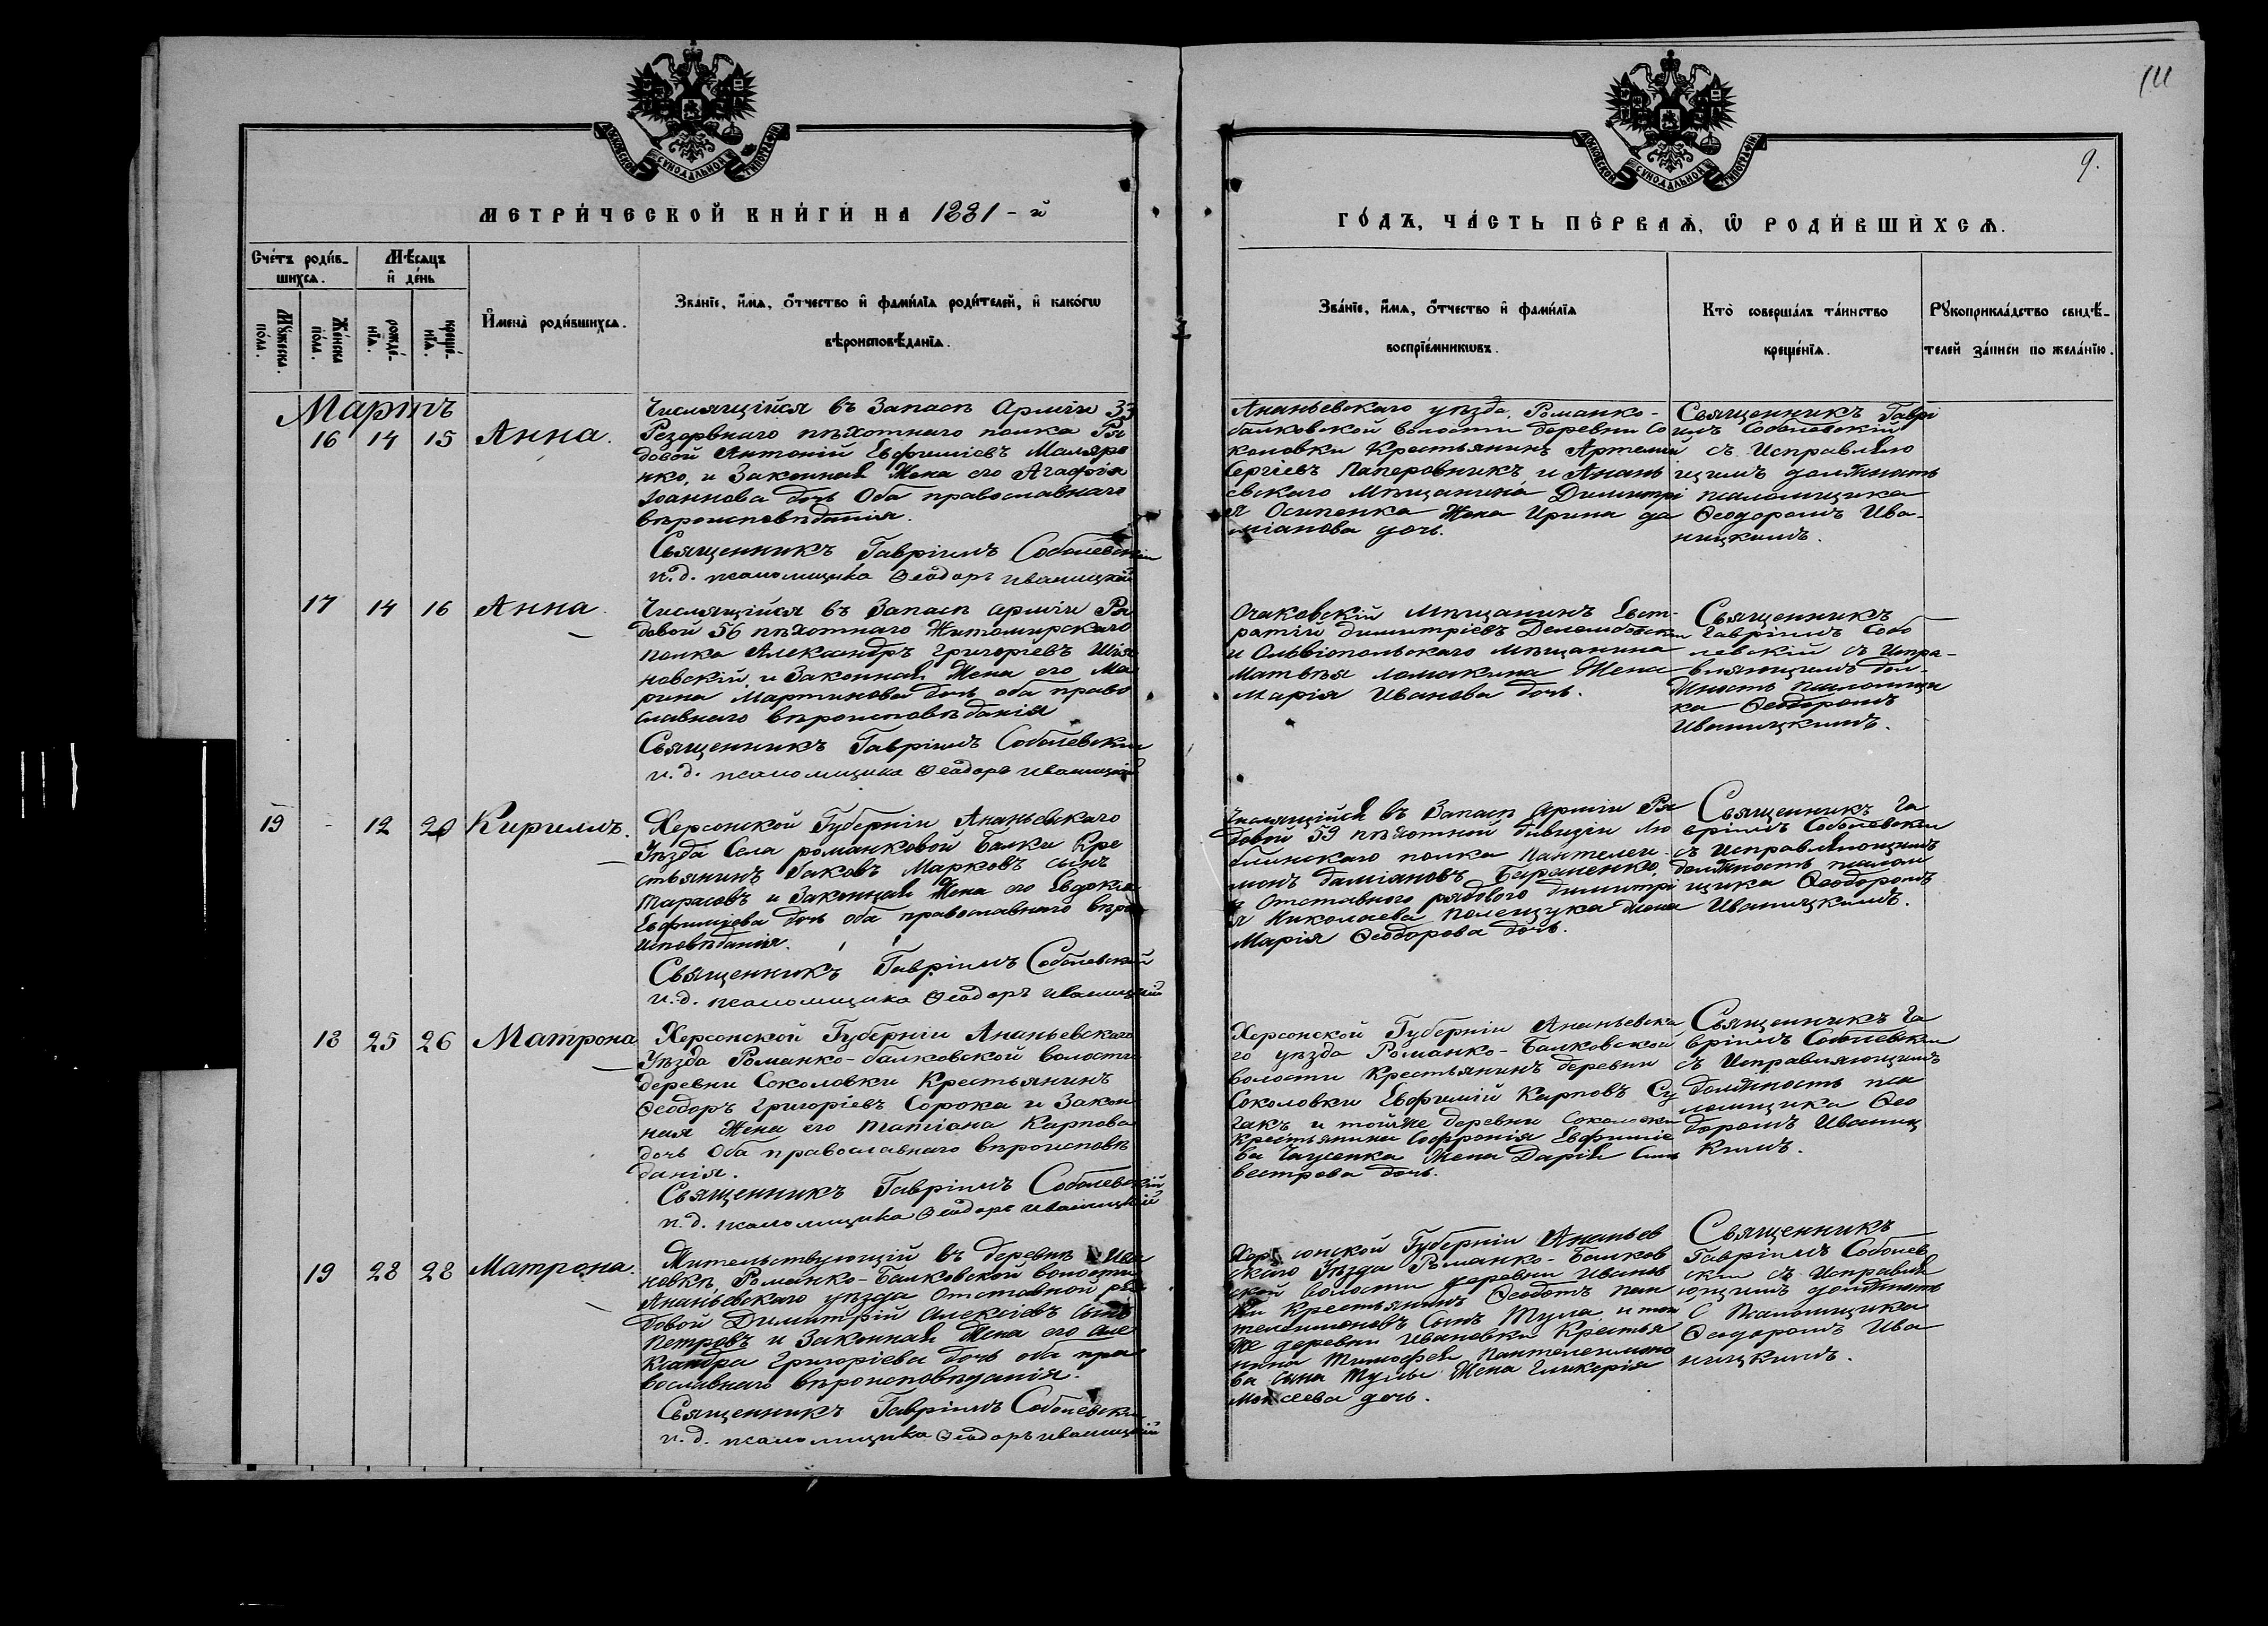 111
МОСКОВСКОЙ СѴНОДАЛЬНОЙ ТИПОГРАФІИ.
МОСКОВСКОЙ СѴНОДАЛЬНОЙ ТИПОГРАФІИ.
9.
МЕТРИ́ЧЕСКОЙ КНИ́ГИ НА 1881-й
ГО́ДЪ, ЧА́СТЬ ПЕ́РВАѦ, Ѽ РОДИ́ВШИХСѦ.
Сче́тъ роди́в-
шихсѧ.
Мꙋ́жеска по́ла.
Же́нска по́ла.
Мѣ́сѧцъ
и҆ де́нь
рожде́нїѧ.
креще́нїѧ.
И҆мена̀ роди́вшихсѧ.
Зва́нїе, и҆́мѧ, ѻ҆́тчество и҆ фами́лїѧ роди́телей, и҆ како́гѡ
вѣроисповѣ́данїѧ.
Зва́нїе, и҆́мѧ, ѻ҆́тчество и҆ фами́лїѧ
воспрїе́мникѡвъ.
Кто̀ соверша́лъ та́инство
креще́нїѧ.
Рꙋкоприкла́дство свидѣ́-
телей за́писи по жела́нїю.
Мартъ
16 14 15 Анна.
Числящійся въ Запасѣ Арміи 33
Резервнаго пѣхотнаго полка Ря
довой Антоній Евфиміевъ Маляре
нко, и Законная Жена его Агафія
Іоаннова дочь Оба православнаго
вѣроисповѣданія.
Священникъ Гавріилъ Соболевскій
и.д. псаломщика Ѳеодоръ Иваницкій
Ананьевскаго уѣзда, Романко-
балковской волости деревни Со
коловки Крестьянинъ Артемій
Сергіевъ Паперовникъ, и Анань
евскаго Мѣщанина Димитрі
я Осипенка Жена Ирина Да
міанова дочь.
Священникъ Гаврі
илъ Соболевскій
съ Исправляю
щимъ должность
псаломщика
Ѳеодоромъ Ива-
ницкимъ.
17 14 16 Анна
Числящійся въ Запасѣ арміи Ря
довой 56 пѣхотнаго Житомирскаго
полка Александръ Григоріевъ
новскій, и Законная Жена его Ма
рина Мартинова дочь оба право
славнаго вѣроисповѣданія
Священникъ Гавріилъ Соболевскій
и.д. псаломщика Ѳеодоръ Иваницкій
Очаковскій Мѣщанинъ Евст-
ратій Димитріевъ
и Ольвіопольскаго мѣщанина
Матвѣя Ломакина Жена
Марія Иванова дочь.
Священникъ
Гавріилъ Собо
левскій съ Испра-
вляющимъ дол-
жность псаломщи
ка Ѳеодоромъ
Иваницкимъ.
19 - 12 20 Кириллъ.
Херсонской Губерніи Ананьевскаго
Уѣзда Села романковой Балки Кре
стьянинъ Іаковъ Марковъ сынъ
Тарасовъ и Законная Жена его Евдокія
Евфиміева дочь оба православнаго вѣро
исповѣданія.
Священникъ Гавріилъ Соболевскій
и.д. псаломщика Ѳеодоръ Иваницкій
Числящійся въ Запасѣ Арміи Ря
довой 59 пѣхотной дивизіи Лю
блинскаго полка Пантелеи-
монъ Даміановъ Бараненко,
и Отставного рядового Димитрі
я Николаева Полещука Жена
Марія Ѳеодорова дочь.
Священникъ Га
вріилъ Соболевскій
съ Исправляющимъ
должность псалом
щика Ѳеодоромъ
Иваницкимъ.
18 25 26 Матрона
Херсонской Губерніи Ананьевскаго
Уѣзда Романко-балковской волости
деревни Соколовки Крестьянинъ
Ѳеодоръ Григоріевъ Сорока и Закон
ная Жена его Татіана Карпова
дочь Оба православнаго вѣроисповѣ
данія.
Священникъ Гавріилъ Соболевскій
и.д. псаломщика Ѳеодоръ Иваницкій
Херсонской Губерніи Ананьевска
го уѣзда Романко-Балковской
волости Крестьянинъ деревни
Соколовки Евфимій Карповъ Су
гакъ и тойже деревни Соколовки
Крестьянина Софронія Евфиміе
ва Жена Дарія Сил
вестрова дочь.
Священникъ Га
вріилъ Соболевскій
съ Исправляющимъ
должность пса
ломщика Ѳео
доромъ Иваниц
кимъ.
19 28 28 Матрона.
Жительствующій въ деревнѣ Ива
новкѣ, Романко-Балковской волости
Ананьевскаго уѣзда Отставной ря
довой Димитрій Алексіевъ Сынъ
Петровъ и Законная Жена его Але
ксандра Григоріева дочь оба пра
вославнаго вѣроисповѣданія.
Священникъ Гавріилъ Соболевскій
и.д. псаломщика Ѳеодоръ Иваницкій
Херсонской Губерніи Ананьев
скаго Уѣзда Романко-Балков
ской Волости деревни Иванов
ки Крестьянинъ Ѳеодотъ Пан
телеимоновъ Сынъ Тула, и той
же деревни Ивановки Крестья
нина Тимофея Пантелеимоно
ва сына Тулы Жена Гликерія
Моисеева дочь.
Священникъ
Гавріилъ Соболев
скій съ Исправля
ющимъ должность
С Псаломщика
Ѳеодоромъ Ива
ницкимъ.